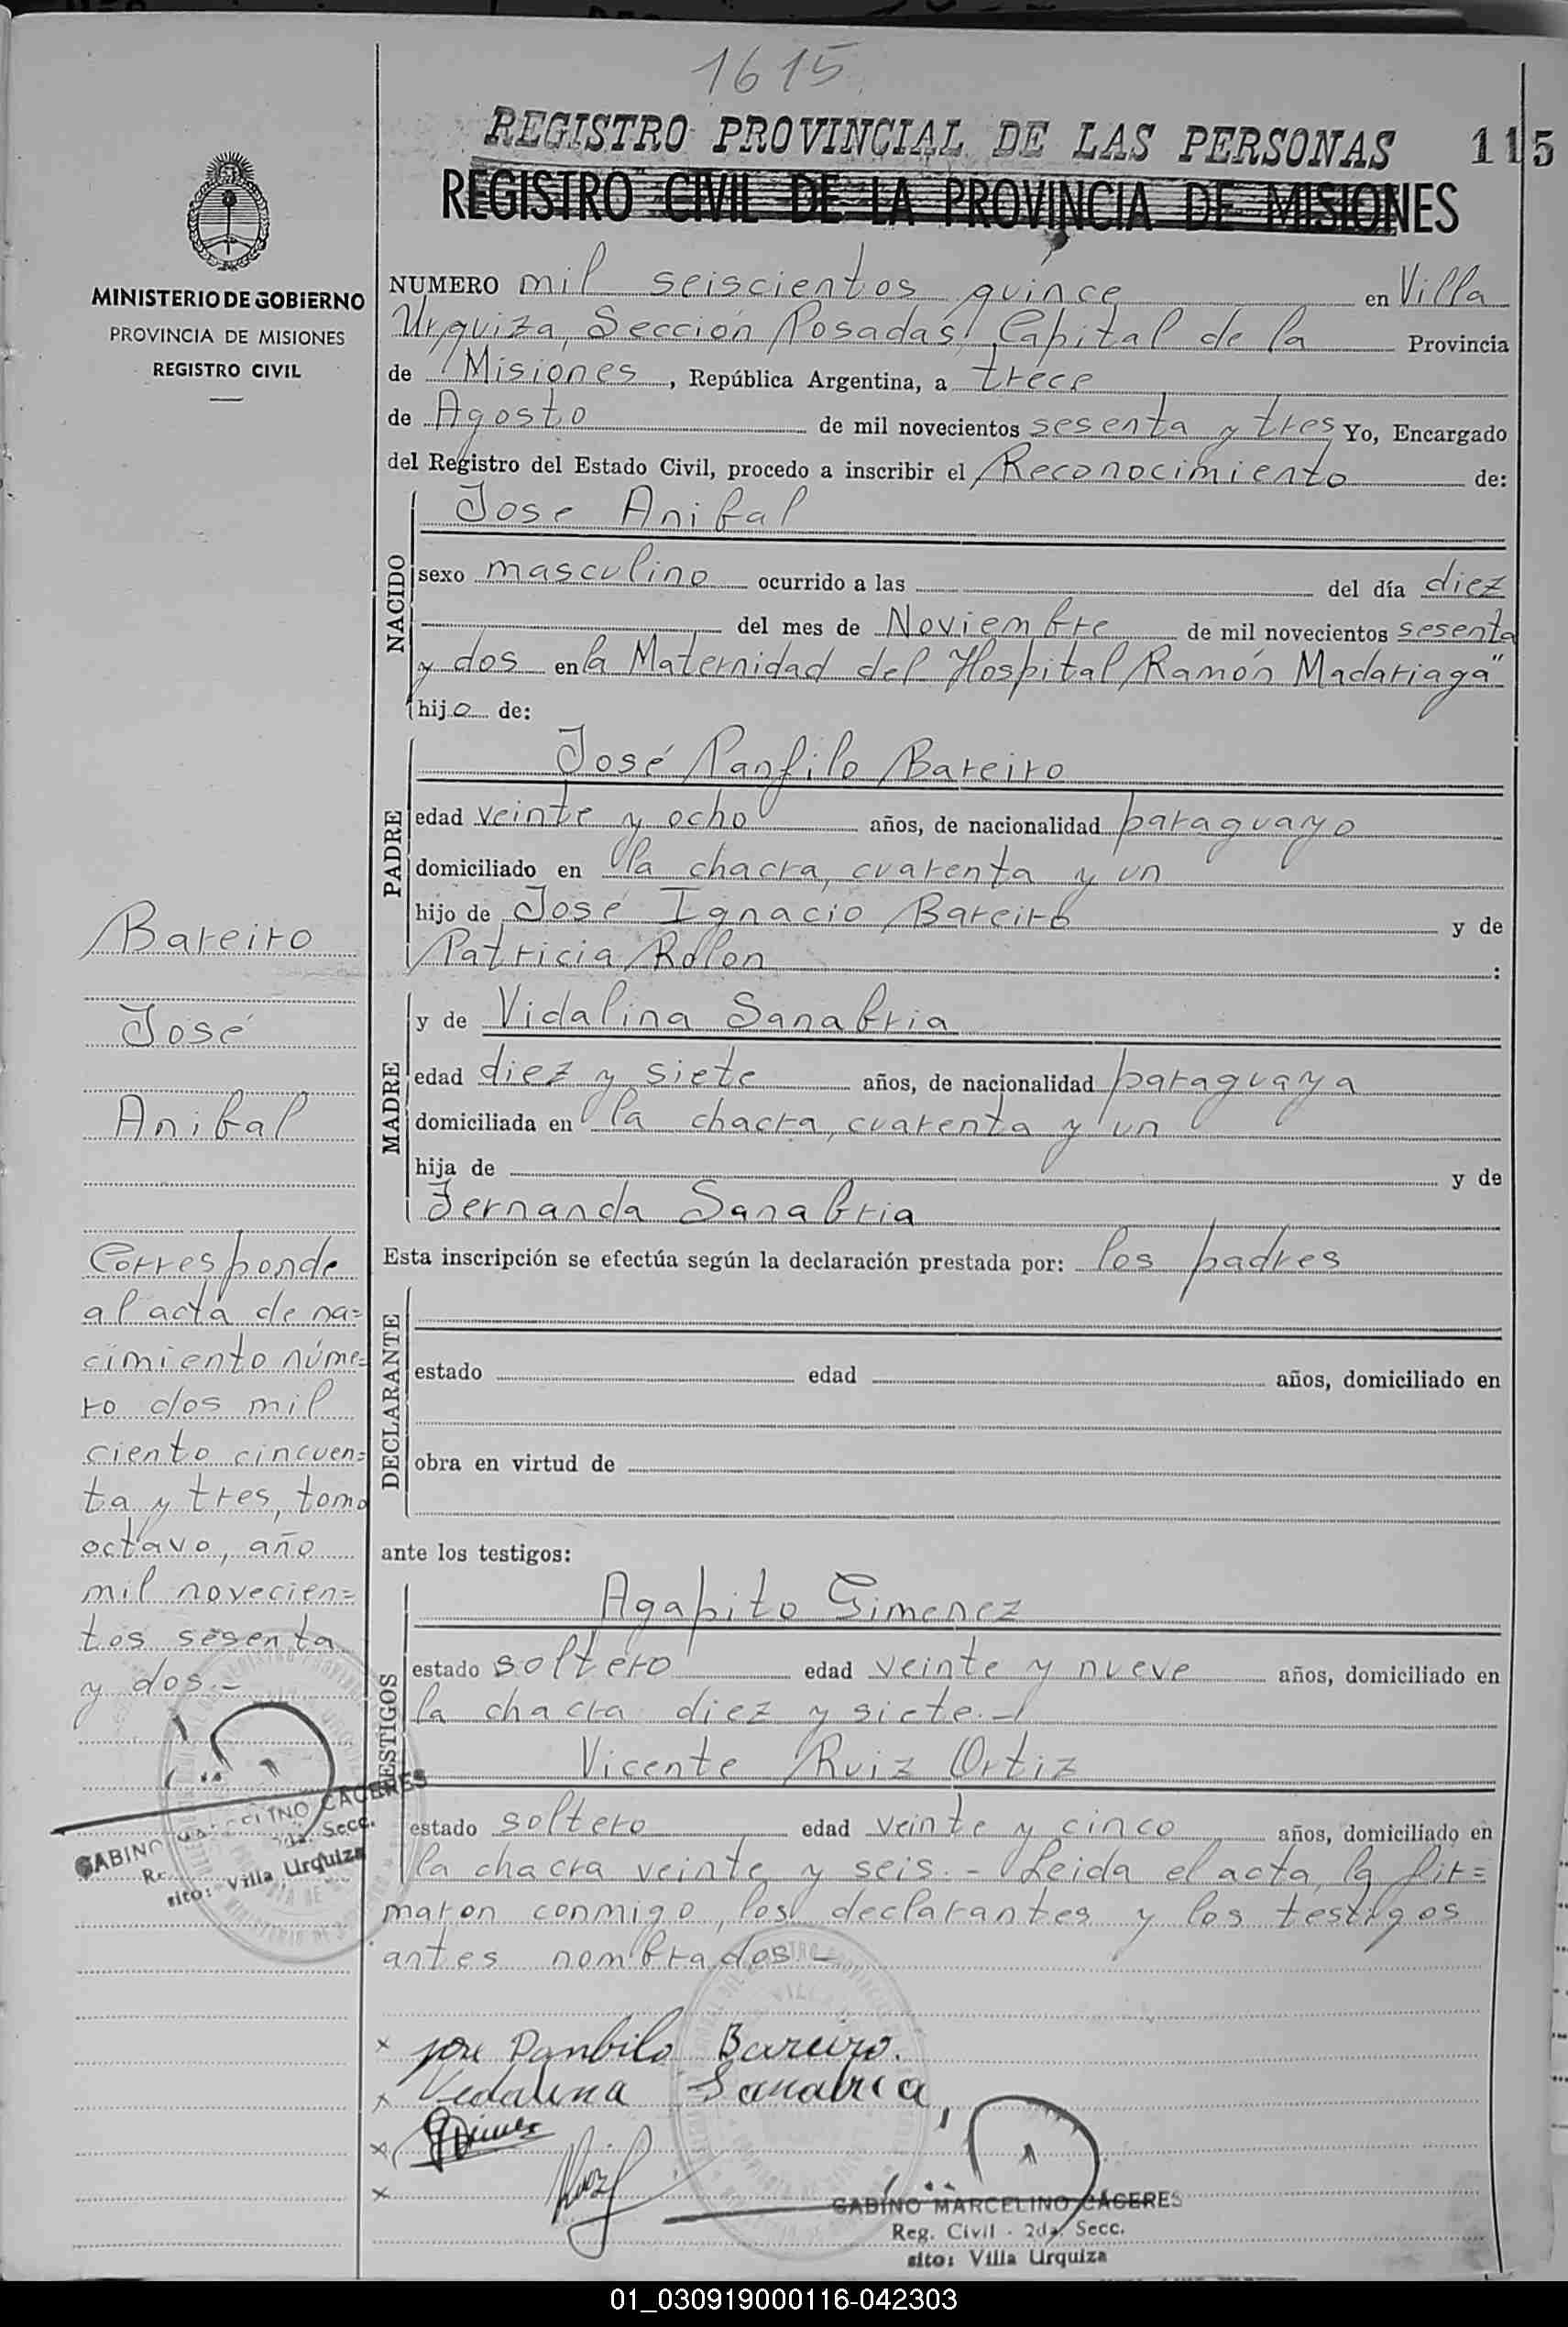 1615
REGISTRO PROVINCIAL DE LAS PERSONAS 115
REGISTRO CIVIL DE LA PROVINCIA DE MISIONES
MINISTERIO DE GOBIERNO
PROVINCIA DE MISIONES
REGISTRO CIVIL
NUMERO mil seiscientos quince en Villa
Urquiza, Sección Posadas, Capital de la Provincia
de Misiones, República Argentina, a trece
de Agosto de mil novecientos sesenta y tres Yo, Encargado
del Registro del Estado Civil, procedo a inscribir el Reconocimiento de:
NACIDO
Jose Anibal
sexo masculino ocurrido a las del día diez
del mes de Noviembre de mil novecientos sesenta
y dos en la Maternidad del Hospital Ramón Madariaga"
hijo de:
PADRE
José Panfilo Bareiro
edad veinte y ocho años, de nacionalidad paraguayo
domiciliado en la chacra, cuarenta y un
hijo de José Ignacio Bareiro y de
Patricia Rolon :
MADRE
y de Vidalina Sanabria
edad diez y siete años, de nacionalidad paraguaya
domiciliada en la chacra, cuarenta y un
hija de y de
Fernanda Sanabria
Esta inscripción se efectúa según la declaración prestada por: los padres
DECLARANTE
estado edad años, domiciliado en
obra en virtud de
ante los testigos:
TESTIGOS
Agapito Gimenez
estado soltero edad veinte y nueve años, domiciliado en
la chacra diez y siete.-
Vicente Ruiz Ortiz
estado soltero edad veinte y cinco años, domiciliado en
la chacra veinte y seis.- Leida el acta, la fir=
maron conmigo, los declarantes y los testigos
antes nombrados.-
Bareiro
José
Anibal
Corresponde
al acta de na=
cimiento núme=
ro dos mil
ciento cincuen=
ta y tres, tomo
octavo, año
mil novecien=
tos sesenta
y dos.-
GABINO MARCELINO CACERES
2da. Secc.
sito: Villa Urquiza
x José Panbilo Bareiro.
x Vedalina Sanabria
x
x
GABINO MARCELINO CACERES
Reg. Civil - 2da. Secc.
sito: Villa Urquiza
01_030919000116-042303